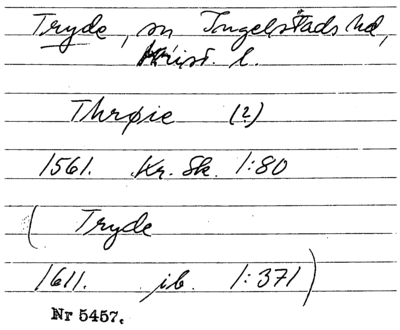 Tryde, sn Ingelstads hd,
Krist. l.
Thrøie (?)
1561. Kr. Sk. 1:80
( Tryde
1611. ib. 1:371)
Nr 5457.